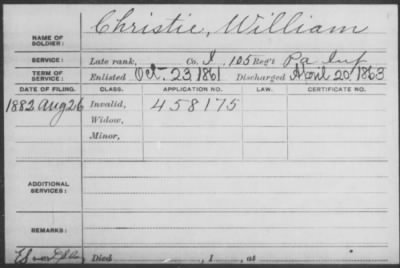 NAME OF SOLDIER: Christie, William
SERVICE: Late rank, Co. I, 105 Reg't Pa Inf
TERM OF SERVICE: Enlisted Oct. 23, 1861 Discharged April 20, 1863
DATE OF FILING. CLASS. APPLICATION NO. LAW. CERTIFICATE NO.
1882 Aug 26 Invalid, 458175
Widow,
Minor,
ADDITIONAL SERVICES:
REMARKS:
Died , 1 , at